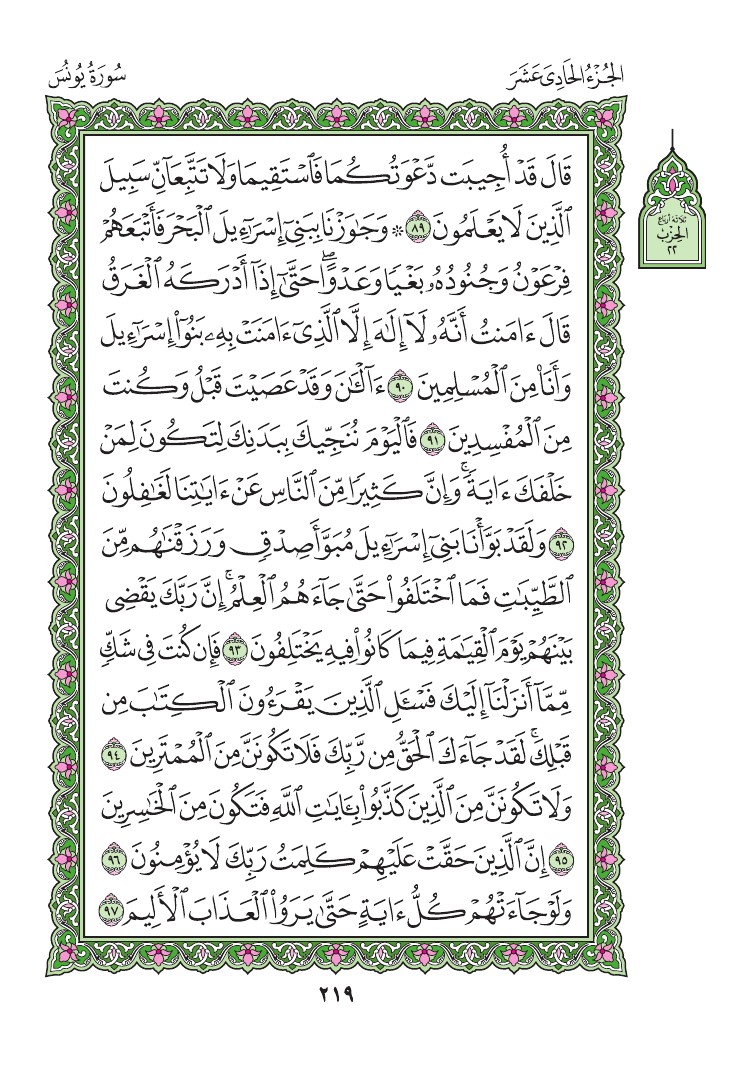 الجُزْءُ الحَادِى عَشَرَ
سُورَةُ يُونُسَ
ثلاثة أرباع
الحِزْب
٢٢
قَالَ قَدْ أُجِيبَت دَّعْوَتُكُمَا فَٱسْتَقِيمَا وَلَا تَتَّبِعَآنِّ سَبِيلَ
ٱلَّذِينَ لَا يَعْلَمُونَ ٨٩ ۞ وَجَٰوَزْنَا بِبَنِىٓ إِسْرَٰٓءِيلَ ٱلْبَحْرَ فَأَتْبَعَهُمْ
فِرْعَوْنُ وَجُنُودُهُۥ بَغْيًا وَعَدْوًاۖ حَتَّىٰٓ إِذَآ أَدْرَكَهُ ٱلْغَرَقُ
قَالَ ءَامَنتُ أَنَّهُۥ لَآ إِلَٰهَ إِلَّا ٱلَّذِىٓ ءَامَنَتْ بِهِۦ بَنُوٓا۟ إِسْرَٰٓءِيلَ
وَأَنَا۠ مِنَ ٱلْمُسْلِمِينَ ٩٠ ءَآلْـَٰٔنَ وَقَدْ عَصَيْتَ قَبْلُ وَكُنتَ
مِنَ ٱلْمُفْسِدِينَ ٩١ فَٱلْيَوْمَ نُنَجِّيكَ بِبَدَنِكَ لِتَكُونَ لِمَنْ
خَلْفَكَ ءَايَةًۚ وَإِنَّ كَثِيرًا مِّنَ ٱلنَّاسِ عَنْ ءَايَٰتِنَا لَغَٰفِلُونَ
٩٢ وَلَقَدْ بَوَّأْنَا بَنِىٓ إِسْرَٰٓءِيلَ مُبَوَّأَ صِدْقٍ وَرَزَقْنَٰهُم مِّنَ
ٱلطَّيِّبَٰتِ فَمَا ٱخْتَلَفُوا۟ حَتَّىٰ جَآءَهُمُ ٱلْعِلْمُۚ إِنَّ رَبَّكَ يَقْضِى
بَيْنَهُمْ يَوْمَ ٱلْقِيَٰمَةِ فِيمَا كَانُوا۟ فِيهِ يَخْتَلِفُونَ ٩٣ فَإِن كُنتَ فِى شَكٍّ
مِّمَّآ أَنزَلْنَآ إِلَيْكَ فَسْـَٔلِ ٱلَّذِينَ يَقْرَءُونَ ٱلْكِتَٰبَ مِن
قَبْلِكَۚ لَقَدْ جَآءَكَ ٱلْحَقُّ مِن رَّبِّكَ فَلَا تَكُونَنَّ مِنَ ٱلْمُمْتَرِينَ ٩٤
وَلَا تَكُونَنَّ مِنَ ٱلَّذِينَ كَذَّبُوا۟ بِـَٔايَٰتِ ٱللَّهِ فَتَكُونَ مِنَ ٱلْخَٰسِرِينَ
٩٥ إِنَّ ٱلَّذِينَ حَقَّتْ عَلَيْهِمْ كَلِمَتُ رَبِّكَ لَا يُؤْمِنُونَ ٩٦
وَلَوْ جَآءَتْهُمْ كُلُّ ءَايَةٍ حَتَّىٰ يَرَوُا۟ ٱلْعَذَابَ ٱلْأَلِيمَ ٩٧
٢١٩